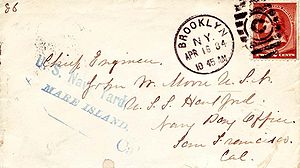 86
BROOKLYN
N.Y.
APR 16 84
10 45 AM
C
Chief Engineer
U.S. Navy Yard
John W. Moore U.S.N.
MARE ISLAND,
U.S.S. Hartford
Navy Pay Office
San Francisco
Cal.